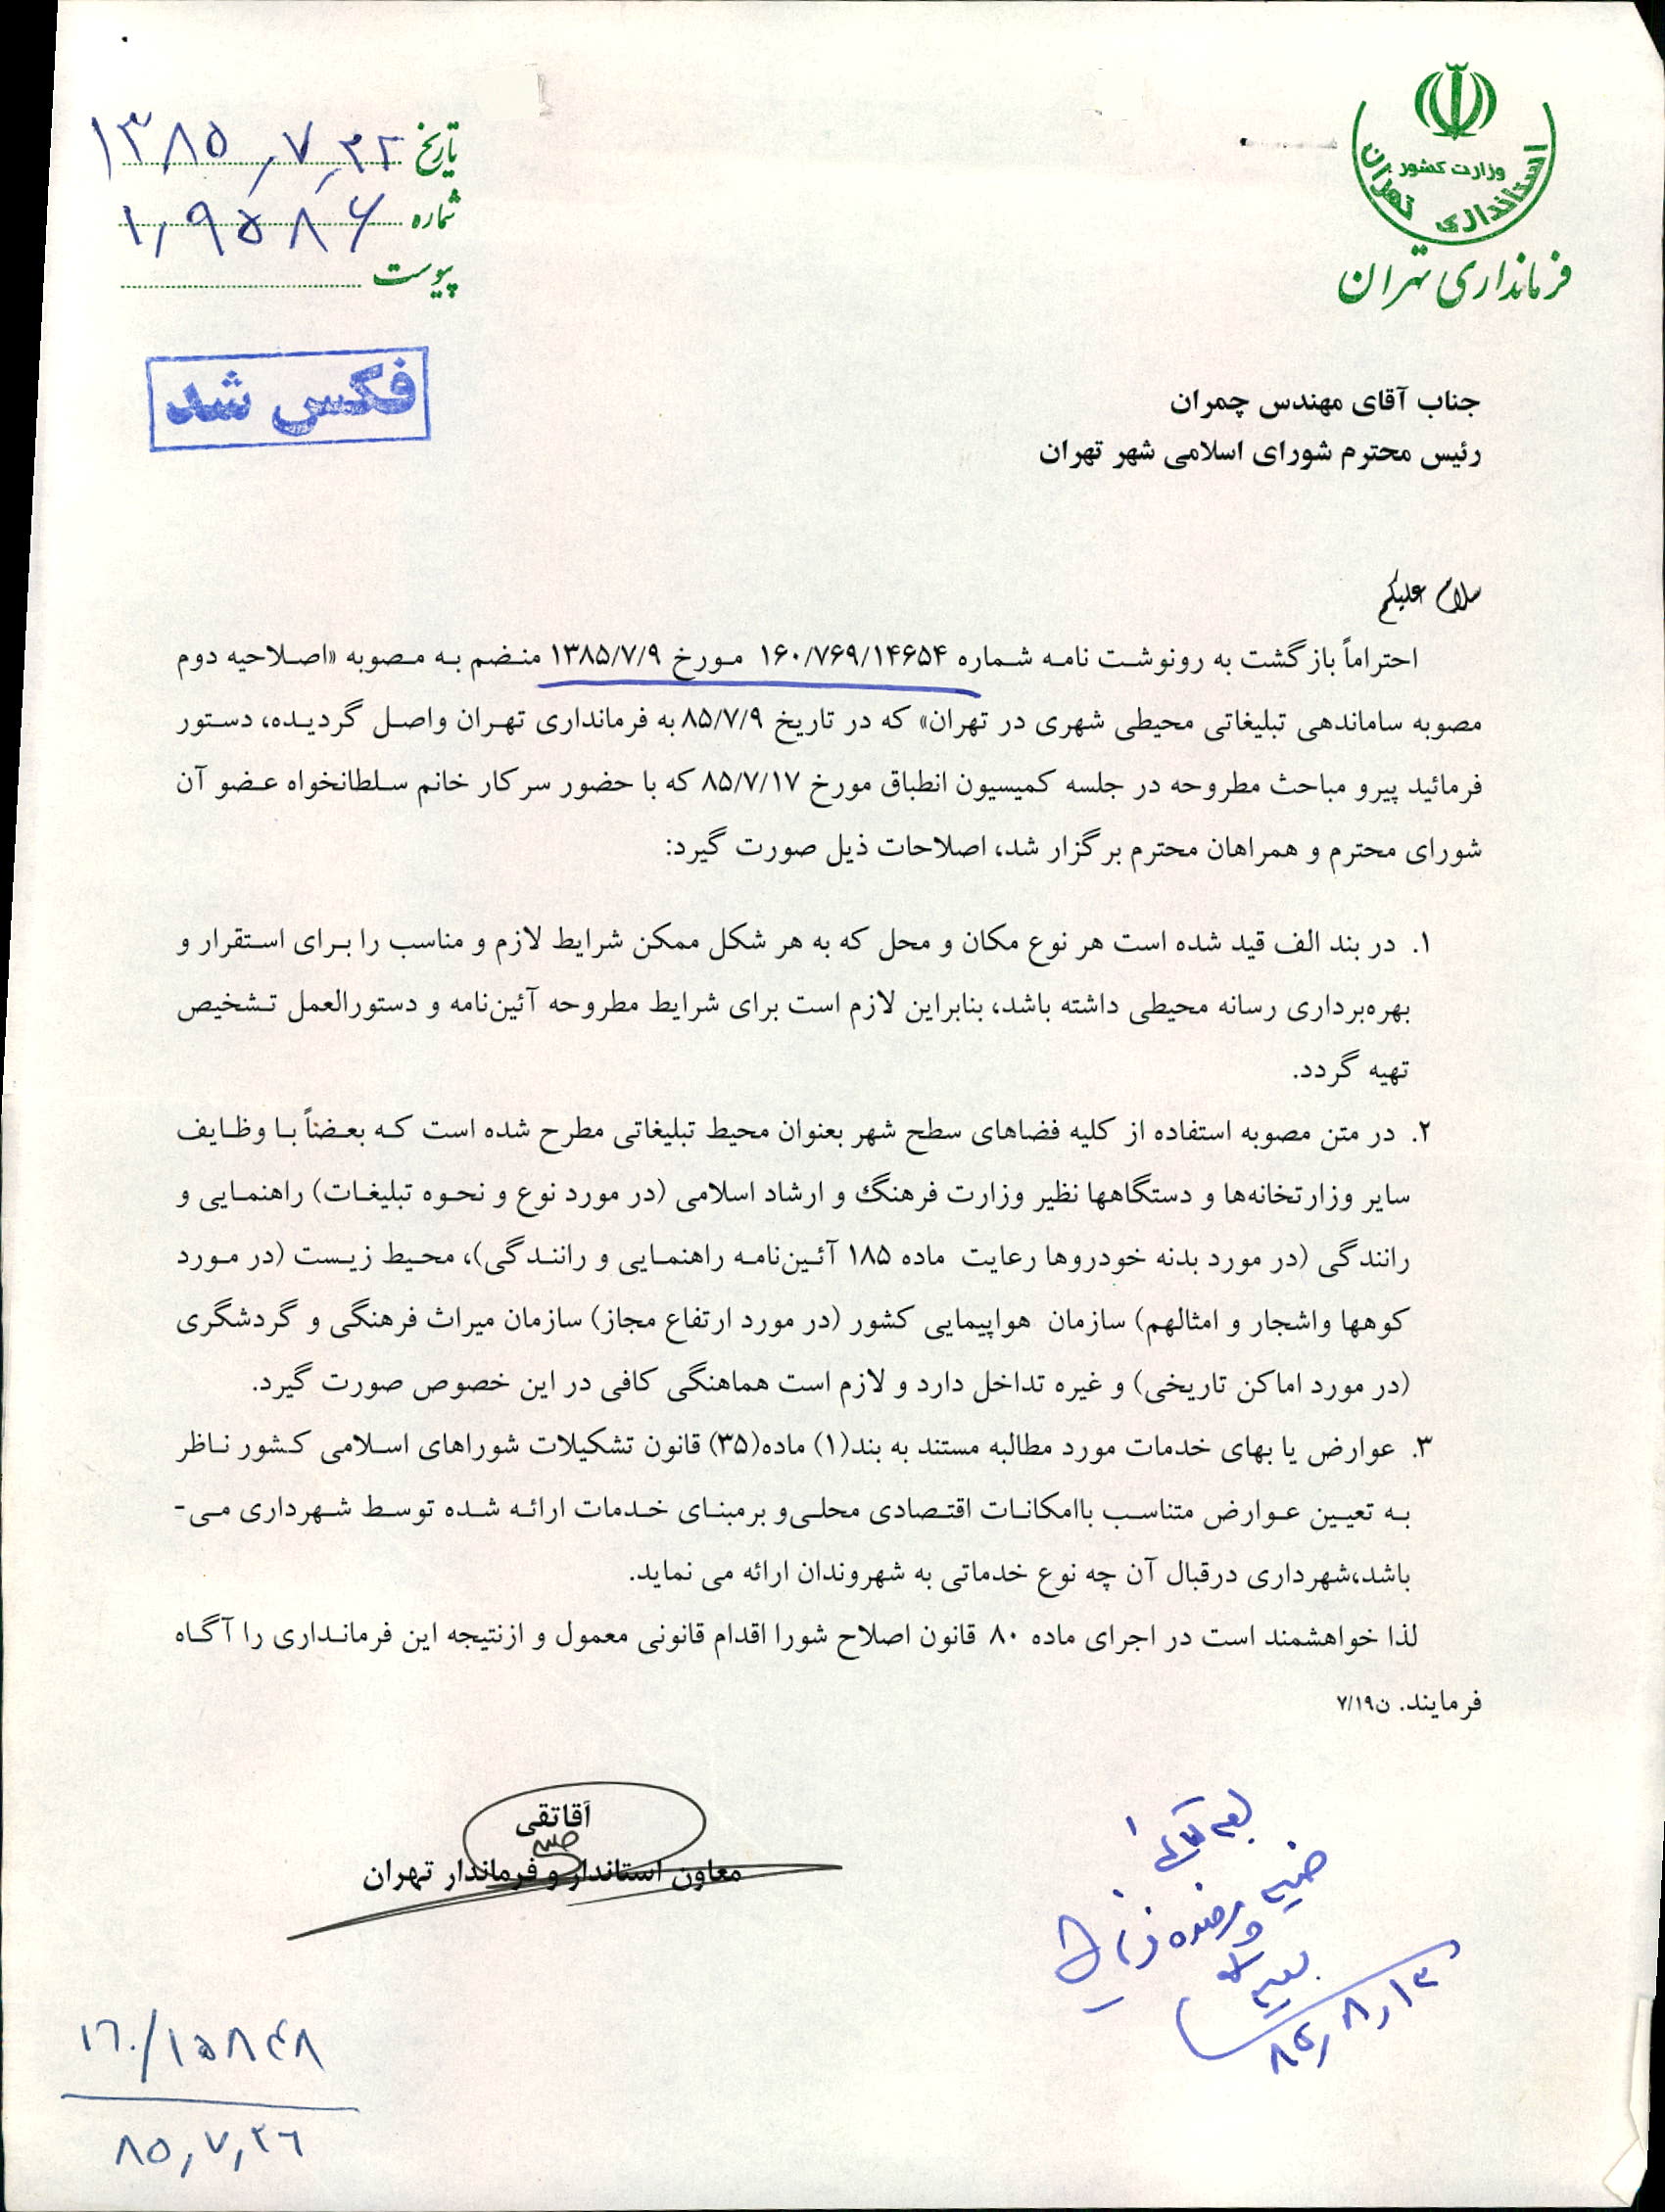 وزارت کشور
استانداری تهران
فرمانداری تهران
تاریخ ۱۳۸۵/۷/۲۲
شماره ۱/۹۵۸۶
پیوست
فکس شد
جناب آقای مهندس چمران
رئیس محترم شورای اسلامی شهر تهران
سلام علیکم
احتراماً بازگشت به رونوشت نامه شماره ۱۶۰/۷۶۹/۱۴۶۵۴ مورخ ۱۳۸۵/۷/۹ منضم به مصوبه «اصلاحیه دوم
مصوبه ساماندهی تبلیغاتی محیطی شهری در تهران» که در تاریخ ۸۵/۷/۹ به فرمانداری تهران واصل گردیده، دستور
فرمائید پیرو مباحث مطروحه در جلسه کمیسیون انطباق مورخ ۸۵/۷/۱۷ که با حضور سرکار خانم سلطانخواه عضو آن
شورای محترم و همراهان محترم برگزار شد، اصلاحات ذیل صورت گیرد:
۱. در بند الف قید شده است هر نوع مکان و محل که به هر شکل ممکن شرایط لازم و مناسب را برای استقرار و
بهره‌برداری رسانه محیطی داشته باشد، بنابراین لازم است برای شرایط مطروحه آئین‌نامه و دستورالعمل تشخیص
تهیه گردد.
۲. در متن مصوبه استفاده از کلیه فضاهای سطح شهر بعنوان محیط تبلیغاتی مطرح شده است که بعضاً با وظایف
سایر وزارتخانه‌ها و دستگاهها نظیر وزارت فرهنگ و ارشاد اسلامی (در مورد نوع و نحوه تبلیغات) راهنمایی و
رانندگی (در مورد بدنه خودروها رعایت ماده ۱۸۵ آئین‌نامه راهنمایی و رانندگی)، محیط زیست (در مورد
کوهها واشجار و امثالهم) سازمان هواپیمایی کشور (در مورد ارتفاع مجاز) سازمان میراث فرهنگی و گردشگری
(در مورد اماکن تاریخی) و غیره تداخل دارد و لازم است هماهنگی کافی در این خصوص صورت گیرد.
۳. عوارض یا بهای خدمات مورد مطالبه مستند به بند(۱) ماده(۳۵) قانون تشکیلات شوراهای اسلامی کشور ناظر
به تعیین عوارض متناسب باامکانات اقتصادی محلی‌و برمبنای خدمات ارائه شده توسط شهرداری می-
باشد،شهرداری درقبال آن چه نوع خدماتی به شهروندان ارائه می نماید.
لذا خواهشمند است در اجرای ماده ۸۰ قانون اصلاح شورا اقدام قانونی معمول و ازنتیجه این فرمانداری را آگاه
فرمایند. ن۷/۱۹
آقاتقی
معاون استاندار و فرماندار تهران
۸۵/۸/۱۳
۱۶۰/۱۵۸۴۸
۸۵/۷/۲۶